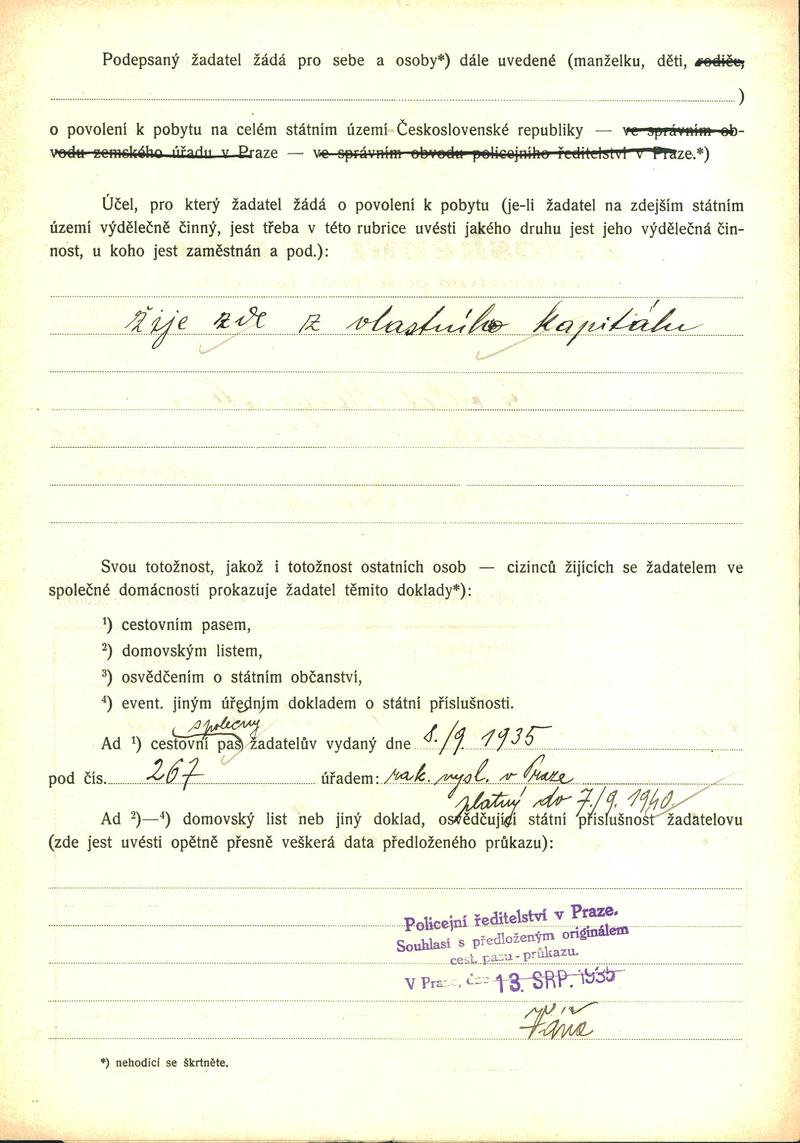 Podepsaný žadatel žádá pro sebe a osoby*) dále uvedené (manželku, děti, rodiče,
)
o povolení k pobytu na celém státním území Československé republiky — ve správním ob-
vodu zemského úřadu v Praze — ve správním obvodu policejního ředitelství v Praze.*)
Účel, pro který žadatel žádá o povolení k pobytu (je-li žadatel na zdejším státním
území výdělečně činný, jest třeba v této rubrice uvésti jakého druhu jest jeho výdělečná čin-
nost, u koho jest zaměstnán a pod.):
žije zde z vlastního kapitálu
Svou totožnost, jakož i totožnost ostatních osob — cizinců žijících se žadatelem ve
společné domácnosti prokazuje žadatel těmito doklady*):
¹) cestovním pasem,
²) domovským listem,
³) osvědčením o státním občanství,
⁴) event. jiným úředním dokladem o státní příslušnosti.
společný
Ad ¹) cestovní pas žadatelův vydaný dne 8./9. 1935
pod čís. 267 úřadem: rak. vysl. v Praze
platný do 7./9. 1940.
Ad ²)—⁴) domovský list neb jiný doklad, osvědčující státní příslušnost žadatelovu
(zde jest uvésti opětně přesně veškerá data předloženého průkazu):
Policejní ředitelství v Praze.
Souhlasí s předloženým originálem
cest. pasu - průkazu.
V Praze, dne 13. SRP. 1935
*) nehodící se škrtněte.